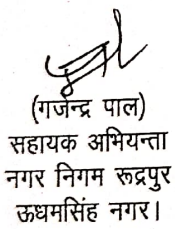 (गजेन्द्र पाल)
सहायक अभियन्ता
नगर निगम रूद्रपुर
ऊधमसिंह नगर।